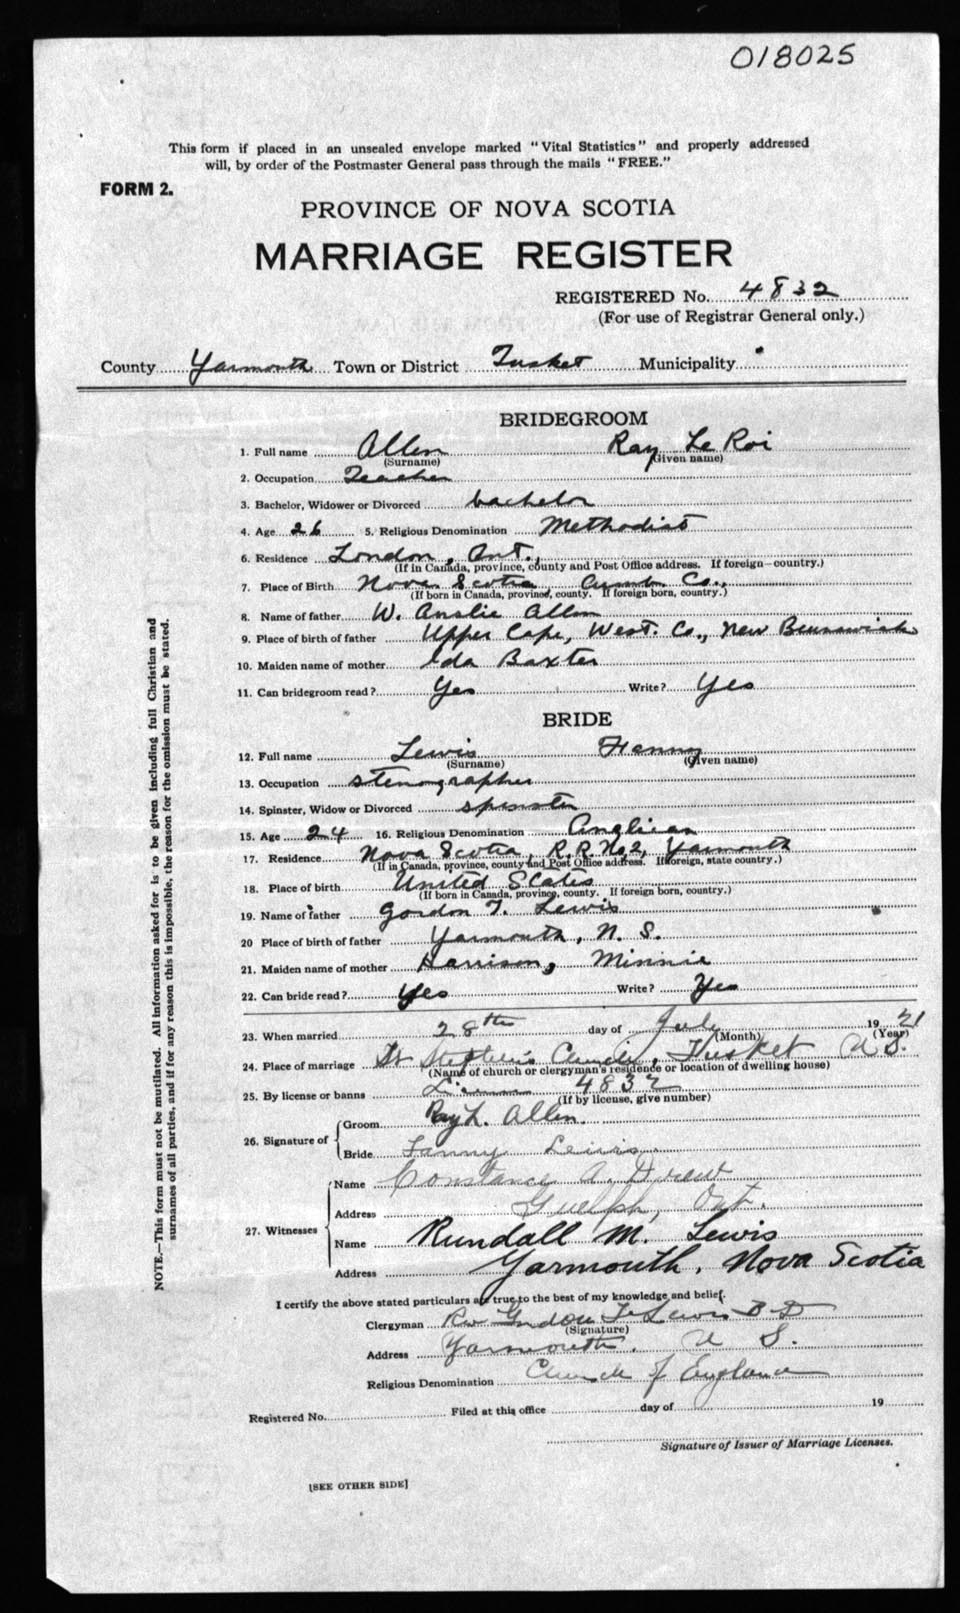 018025
This form if placed in an unsealed envelope marked "Vital Statistics" and properly addressed
will, by order of the Postmaster General pass through the mails "FREE."
FORM 2.
PROVINCE OF NOVA SCOTIA
MARRIAGE REGISTER
REGISTERED No. 4832
(For use of Registrar General only.)
County Yarmouth Town or District Tusket Municipality
BRIDEGROOM
1. Full name Allen Ray Le Roi
(Surname) (Given name)
2. Occupation Teacher
3. Bachelor, Widower or Divorced bachelor
4. Age 26 5. Religious Denomination Methodist
6. Residence London, Ont.,
(If in Canada, province, county and Post Office address. If foreign—country.)
7. Place of Birth Nova Scotia Cumb. Co.,
(If born in Canada, province, county. If foreign born, country.)
8. Name of father W. Anslie Allen
9. Place of birth of father Upper Cape, West. Co., New Brunswick
10. Maiden name of mother Ida Baxter
11. Can bridegroom read? Yes Write? Yes
BRIDE
12. Full name Lewis Fanny
(Surname) (Given name)
13. Occupation stenographer
14. Spinster, Widow or Divorced spinster
15. Age 24 16. Religious Denomination Anglican
17. Residence Nova Scotia, R.R. No. 2, Yarmouth
(If in Canada, province, county and Post Office address. If foreign, state country.)
18. Place of birth United States
(If born in Canada, province, county. If foreign born, country.)
19. Name of father Gordon T. Lewis
20 Place of birth of father Yarmouth, N. S.
21. Maiden name of mother Harrison, Minnie
22. Can bride read? Yes Write? Yes
23. When married 28th day of July 1921
(Month) (Year)
24. Place of marriage St Stephen's Church, Tusket N S.
(Name of church or clergyman's residence or location of dwelling house)
25. By license or banns License 4832
(If by license, give number)
26. Signature of Groom Ray L. Allen.
Bride Fanny Lewis.
27. Witnesses Name Constance A. Drew
Address Guelph, Ont.
Name Rundall M. Lewis
Address Yarmouth, Nova Scotia
I certify the above stated particulars are true to the best of my knowledge and belief.
Clergyman Rev Gordon T Lewis B D
(Signature)
Address Yarmouth. N S.
Religious Denomination Church of England
Registered No. Filed at this office day of 19
Signature of Issuer of Marriage Licenses.
[SEE OTHER SIDE]
NOTE.—This form must not be mutilated. All information asked for is to be given including full Christian and
surnames of all parties, and if for any reason this is impossible, the reason for the omission must be stated.